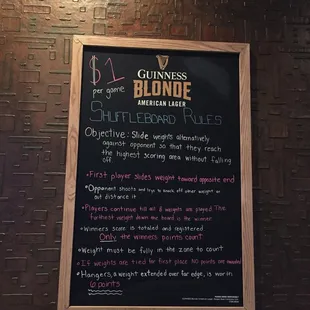 $1
per game
GUINNESS
BLONDE
AMERICAN LAGER
SHUFFLEBOARD RULES
Objective: Slide weights alternatively
against opponent so that they reach
the highest scoring area without falling
off.
• First player slides weight toward opposite end
• Opponent shoots and trys to knock off under weight or
out distance it
• Players continue till all 8 weights are played. The
furthest weight down the board is the winner
Winners score is totaled and registered
Only the winners points count
• Weight must be fully in the zone to count
• If weights are tied for first place No points are awarded
• Hangers, a weight extended over far edge, is worth
6 points